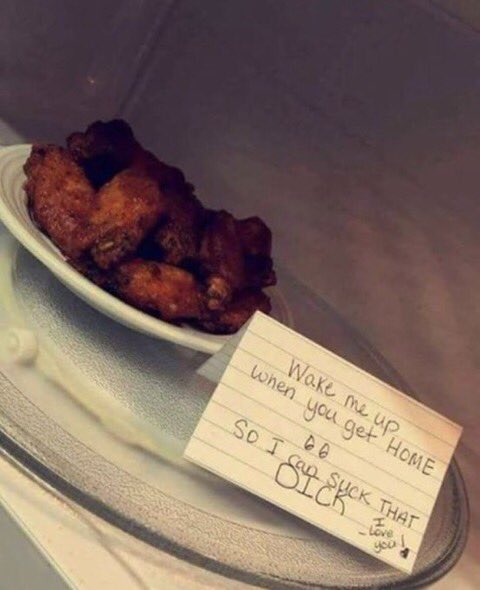 Wake me up
when you get HOME
66
So I can SUCK THAT
DICK
I
love
you!